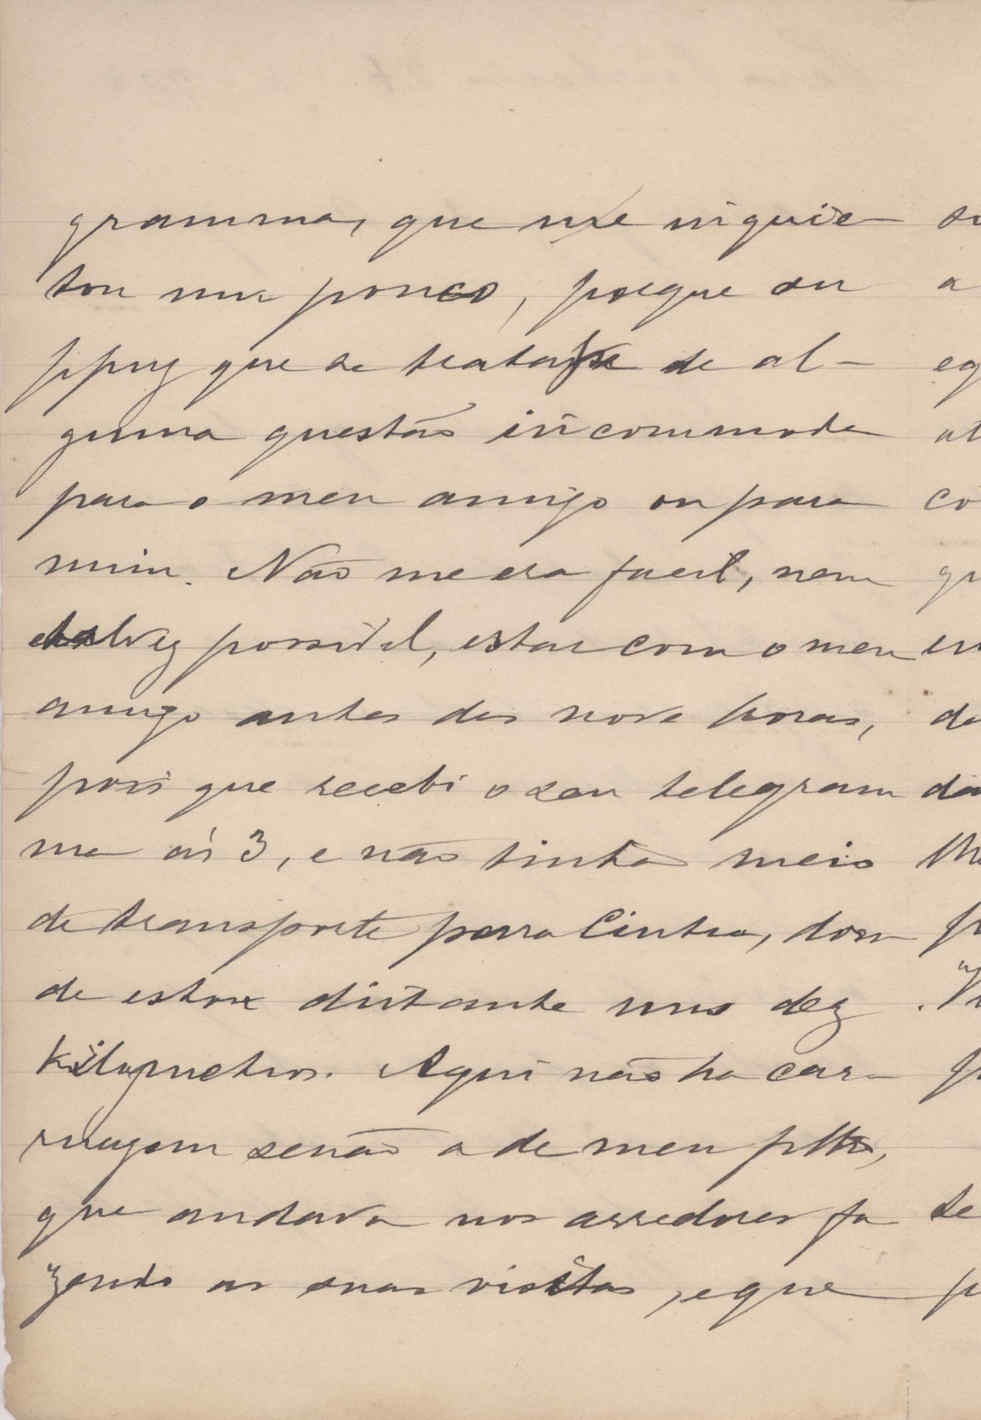 gramma, que me inquie-
tou um pouco, porque su
ppuz que se tratasse de al-
guma questão incommoda
para o meu amigo ou para
mim. Não me era facil, nem
talvez possivel, estar com o meu
amigo antes das nove horas,
pois que recebi o seu telegram
ma ás 3, e não tinha meio
de transporte para Cintra, don
de estou distante uns dez
kilometros. Aqui não ha car-
ruagem senão a de meu filho,
que andava nos arredores fa
zendo as suas visitas, e que